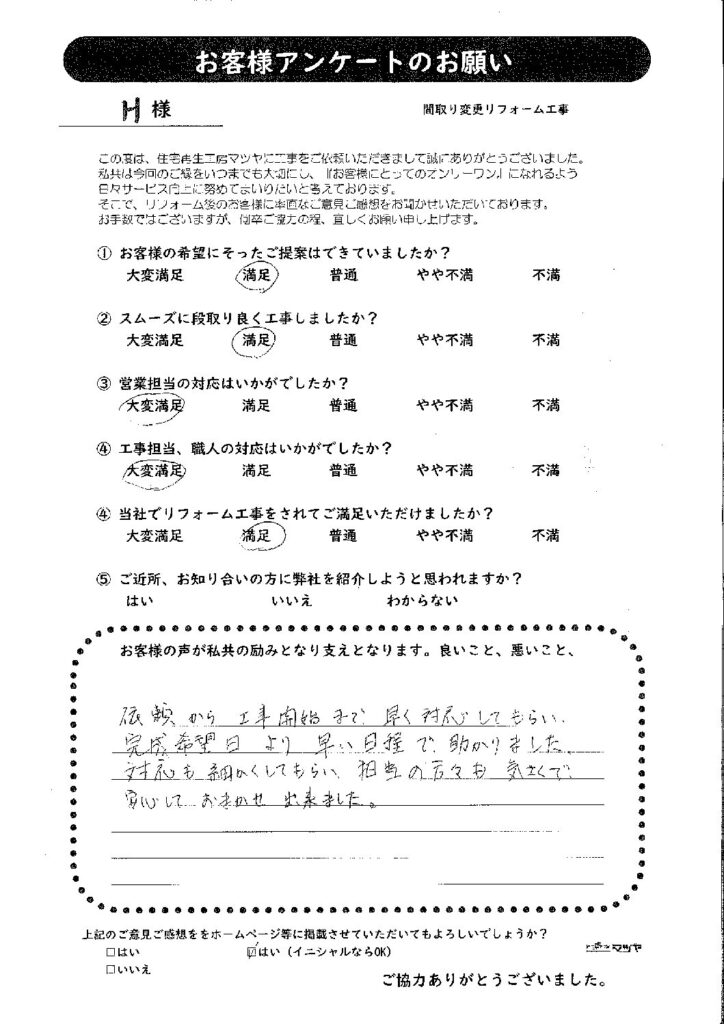 お客様アンケートのお願い
H 様
間取り変更リフォーム工事
この度は、住宅再生工房マツヤに工事をご依頼いただきまして誠にありがとうございました。
私共は今回のご縁をいつまでも大切にし、『お客様にとってのオンリーワン』になれるよう
日々サービス向上に努めてまいりたいと考えております。
そこで、リフォーム後のお客様に率直なご意見ご感想をお聞かせいただいております。
お手数ではございますが、何卒ご協力の程、宜しくお願い申し上げます。
① お客様の希望にそったご提案はできていましたか？
大変満足 満足 普通 やや不満 不満
② スムーズに段取り良く工事しましたか？
大変満足 満足 普通 やや不満 不満
③ 営業担当の対応はいかがでしたか？
大変満足 満足 普通 やや不満 不満
④ 工事担当、職人の対応はいかがでしたか？
大変満足 満足 普通 やや不満 不満
④ 当社でリフォーム工事をされてご満足いただけましたか？
大変満足 満足 普通 やや不満 不満
⑤ ご近所、お知り合いの方に弊社を紹介しようと思われますか？
はい いいえ わからない
お客様の声が私共の励みとなり支えとなります。良いこと、悪いこと、
依頼から工事開始まで早く対応してもらい、
完成希望日より早い日程で助かりました。
対応も細かくしてもらい、担当の方々も気さくで
安心しておまかせ出来ました。
上記のご意見ご感想ををホームページ等に掲載させていただいてもよろしいでしょうか？
□はい ☑はい（イニシャルならOK）
□いいえ
マツヤ
ご協力ありがとうございました。